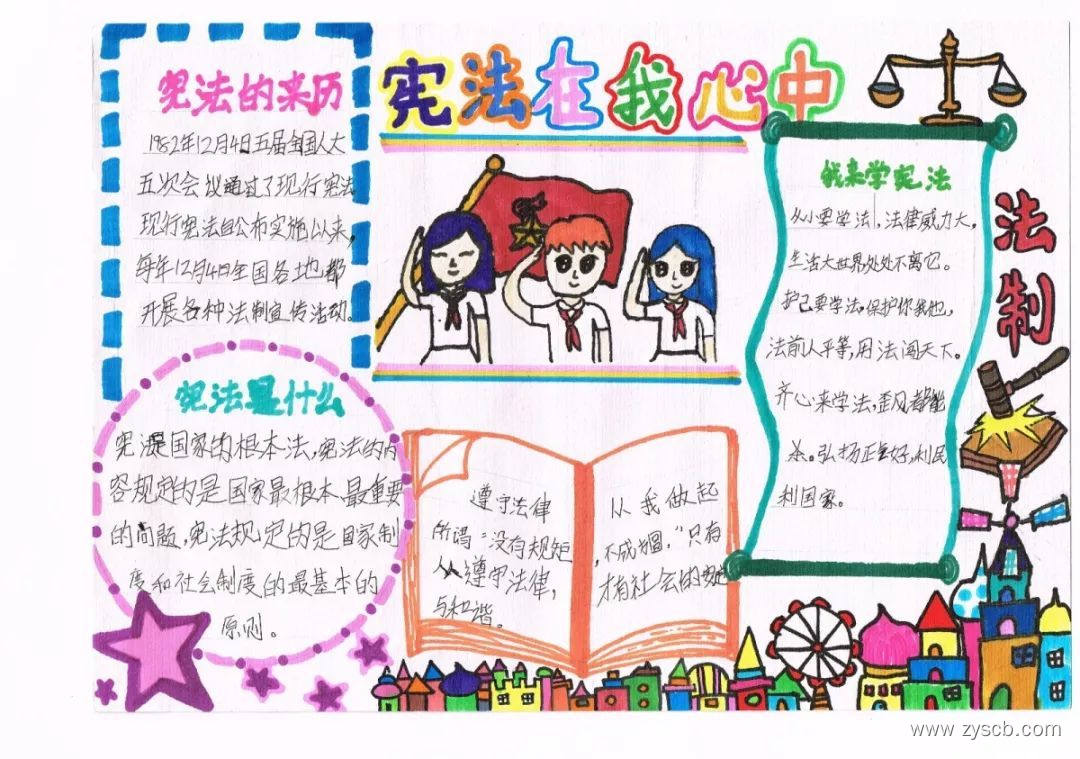 宪法在我心中
宪法的来历
1982年12月4日五届全国人大
五次会议通过了现行宪法
现行宪法自公布实施以来,
每年12月4日全国各地都
开展各种法制宣传活动。
宪法是什么
宪法是国家的根本法,宪法的内
容规定的是国家最根本、最重要
的问题,宪法规定的是国家制
度和社会制度的最基本的
原则。
遵守法律
所谓“没有规矩
人人遵守法律,
与和谐。
从我做起
,不成方圆,”只有
才有社会的安定
我来学宪法
从小要学法,法律威力大,
生活大世界处处不离它。
护己要学法,保护你我他,
法前人平等,用法闯天下。
齐心来学法,歪风都能
杀。弘扬正气好,利民
利国家。
法制
www.zyscb.com